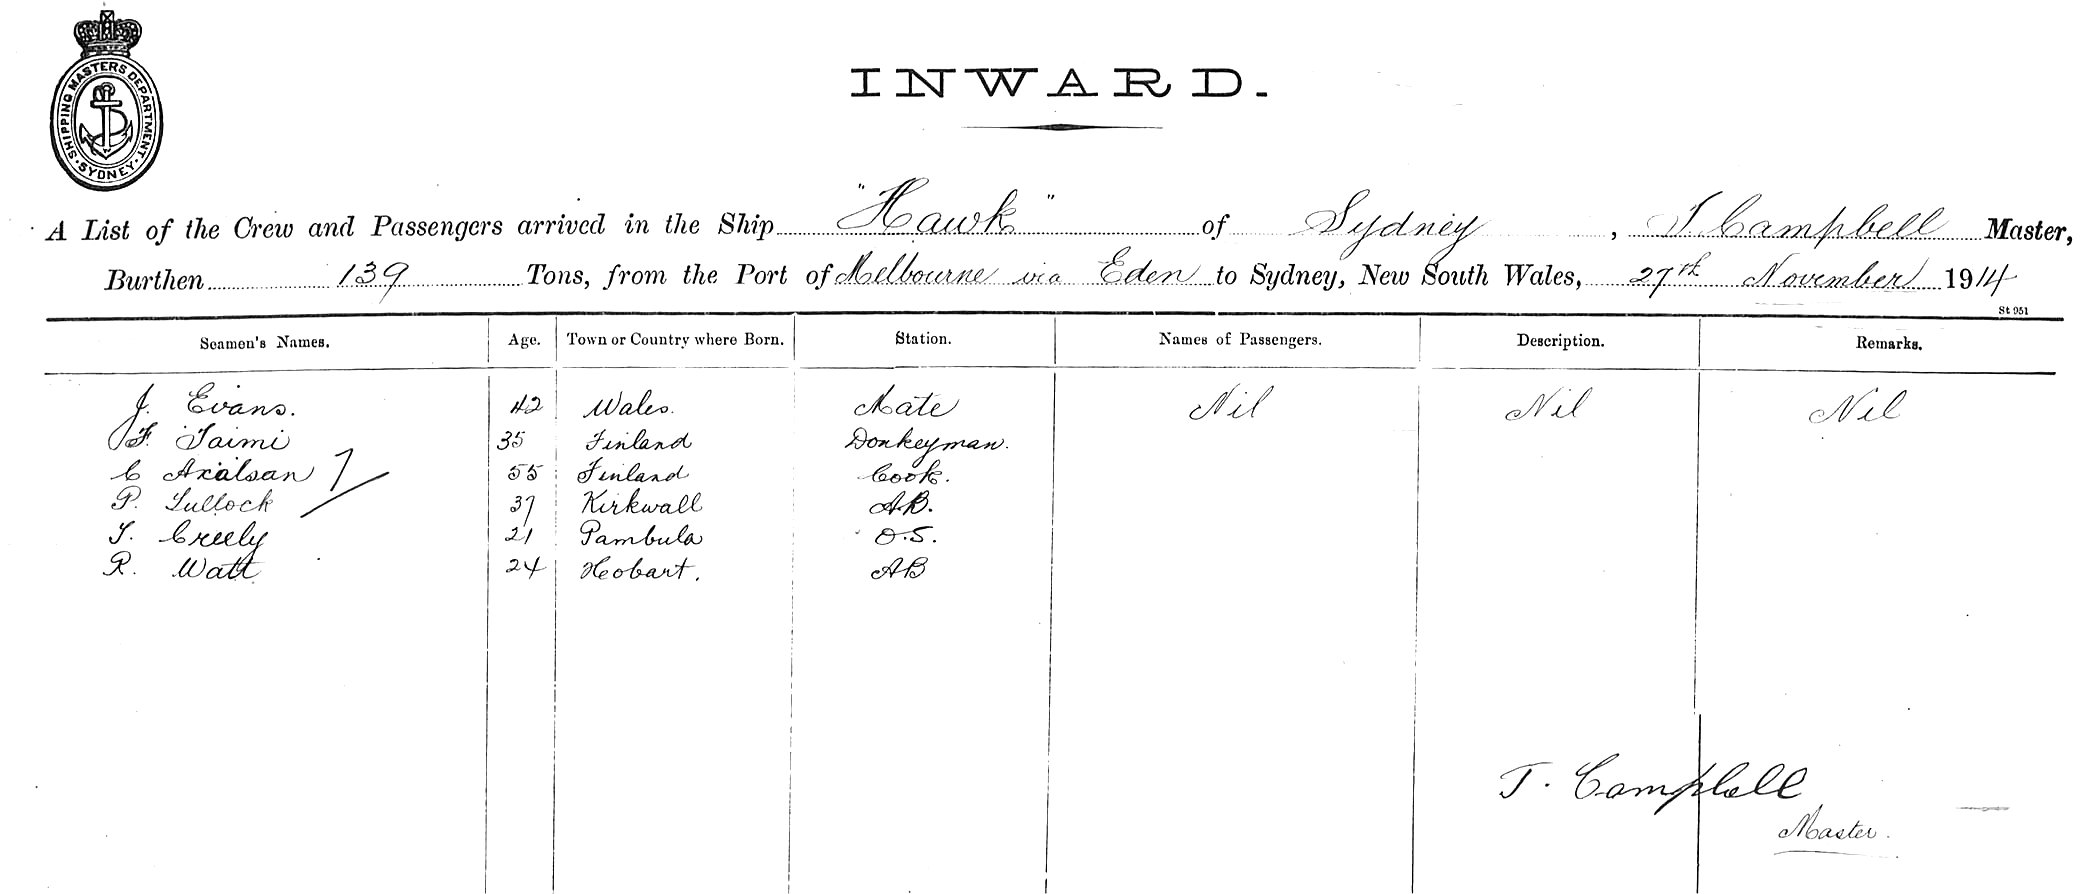 SHIPPING MASTERS DEPARTMENT · SYDNEY ·
INWARD.
A List of the Crew and Passengers arrived in the Ship "Hawk" of Sydney, T Campbell Master,
Burthen 139 Tons, from the Port of Melbourne via Eden to Sydney, New South Wales, 27th November 1914
St 951
Seamen's Names. Age. Town or Country where Born. Station. Names of Passengers. Description. Remarks.
J. Evans. 42 Wales. Mate Nil Nil Nil
F. Taimi 35 Finland Donkeyman.
C Axalsan 55 Finland Cook.
P. Tullock 37 Kirkwall AB.
T. Creely 21 Pambula O.S.
R. Watt 24 Hobart. AB
T. Campbell
Master.